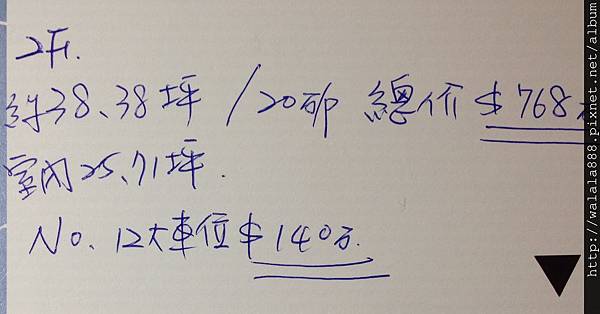 2F.
約38、38坪 /20萬 總价$768
室內25、71坪.
No、12大車位$140万.
http://walala888.pixnet.net/album